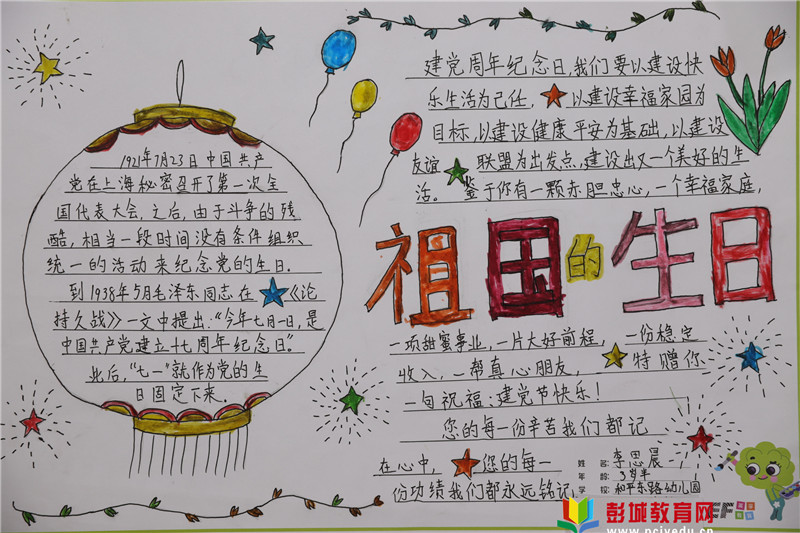 1921年7月23日中国共产
党在上海秘密召开了第一次全
国代表大会，之后，由于斗争的残
酷，相当一段时间没有条件组织
统一的活动来纪念党的生日．
到1938年5月毛泽东同志在《论
持久战》一文中提出：“今年七月一日，是
中国共产党建立十七周年纪念日”。
此后，“七一”就作为党的生
日固定下来．
建党周年纪念日，我们要以建设快
乐生活为己任，以建设幸福家园为
目标，以建设健康平安为基础，以建设
友谊联盟为出发点，建设出又一个美好的生
活。鉴于你有一颗赤胆忠心，一个幸福家庭，
祖国的生日
一项甜蜜事业，一片大好前程，一份稳定
收入，一帮真心朋友，特赠你
一句祝福：建党节快乐！
您的每一份辛苦我们都记
在心中，您的每一
份功绩我们都永远铭记．
姓名：李思晨
年龄：3岁半
学校：和平东路幼儿园
EF
彭城教育网
www.pcjyedu.cn